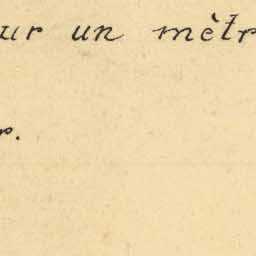 ur un mètr
r.